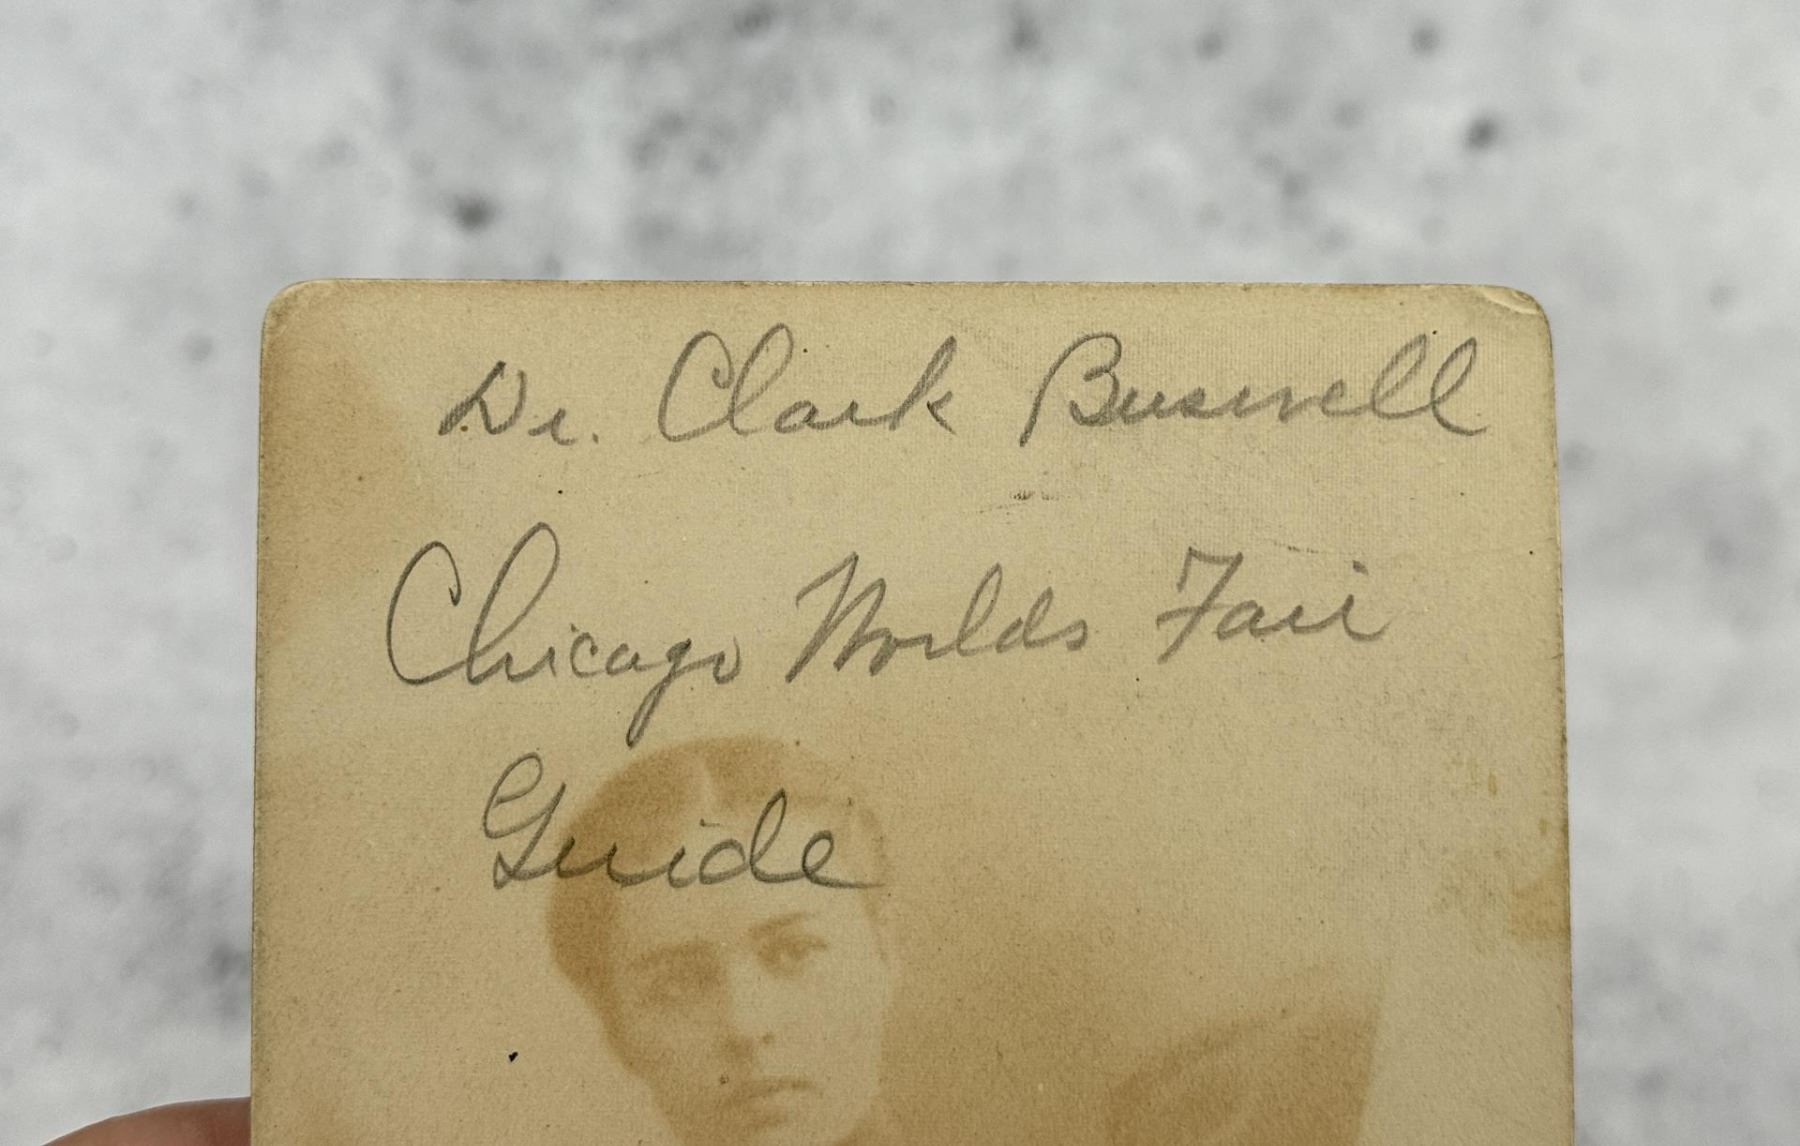 Dr. Clark Buswell
Chicago Worlds Fair
Guide